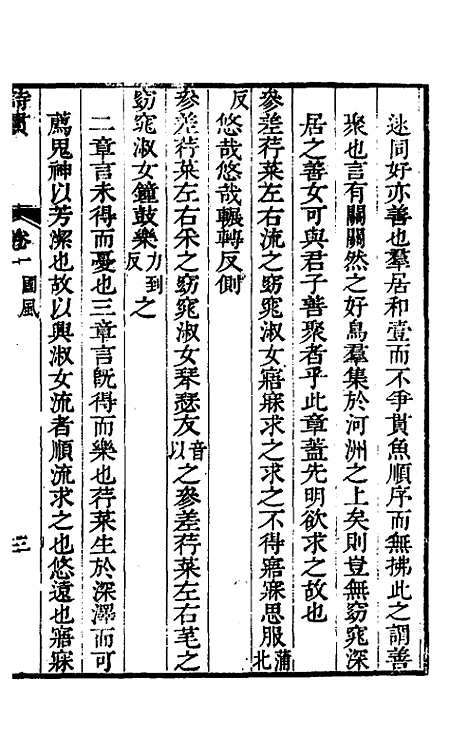 逑同好亦善也羣居和壹而不爭貫魚順序而無拂此之謂善
聚也言有關關然之好鳥羣集於河洲之上矣則豈無窈窕深
居之善女可與君子善聚者乎此章蓋先明欲求之故也
參差荇菜左右流之窈窕淑女寤寐求之求之不得寤寐思服蒲北
反悠哉悠哉輾轉反側
參差荇菜左右采之窈窕淑女琴瑟友音以之參差荇菜左右芼之
窈窕淑女鐘鼓樂力到反之
二章言未得而憂也三章言旣得而樂也荇菜生於深澤而可
薦鬼神以芳潔也故以興淑女流者順流求之也悠遠也寤寐
詩貫
卷十 國風
三